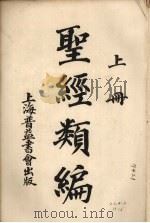 上冊
聖經類編
上海普益書會出版